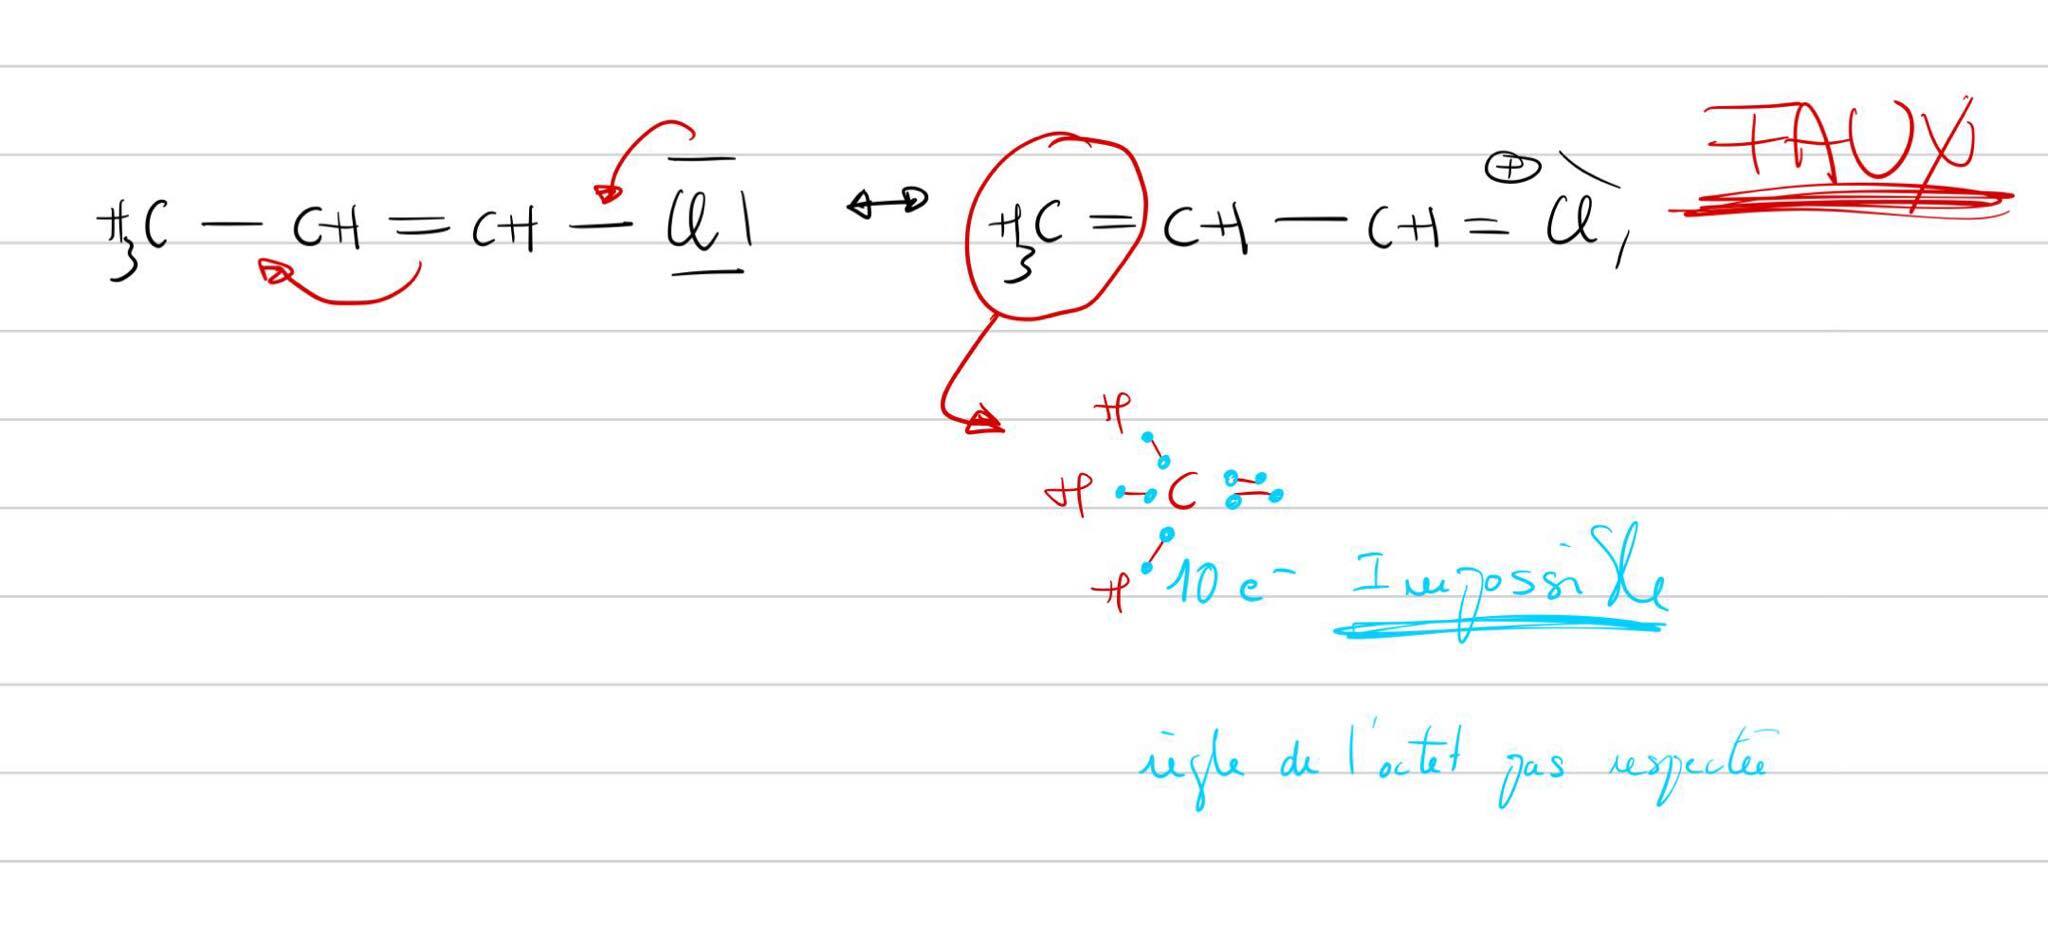 H₃C — CH = CH — Cl| ↔ H₃C = CH — CH = Cl ⊕ FAUX
H
H C
H 10 e⁻ Impossible
règle de l'octet pas respectée